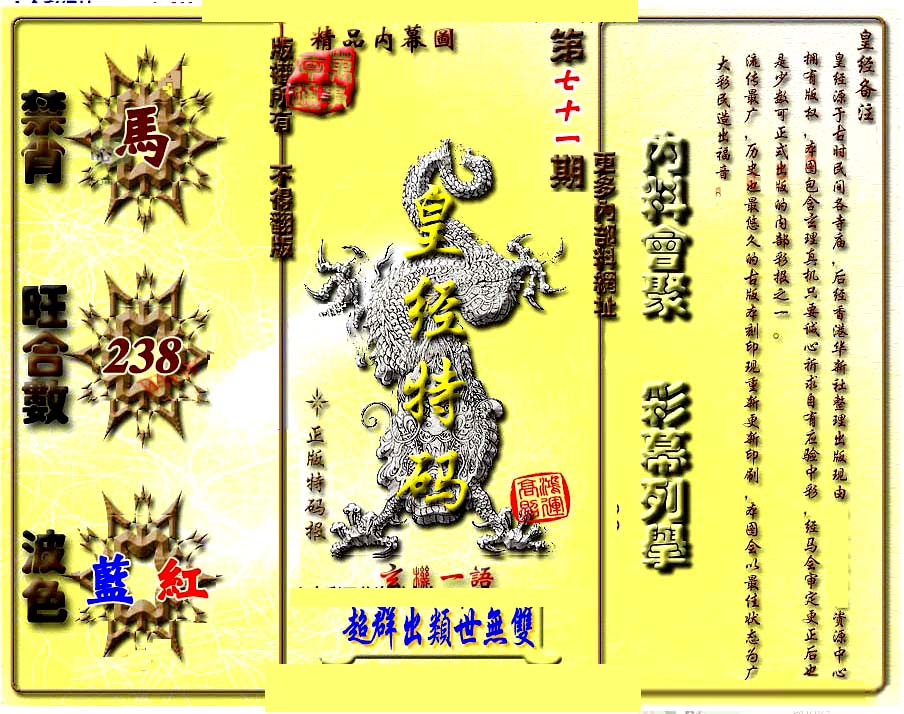 禁肖
馬
旺合數
238
波色
藍 紅
版權所有 不得翻版
精品内幕圖
第七十一期
皇经特码
正版特码报
鴻運高照
玄機一語
超群出類世無雙
更多内部料網址
内料會聚
彩幕列舉
皇经备注
皇经源于古时民间各寺庙，后经香港华新社整理出版现由 资源中心
拥有版权，本图包含玄理真机只要诚心祈求自有应验中彩，经马会审定更正后也
是少数可正式出版的内部彩报之一。
流传最广，历史也最悠久的古版本刻印现重新更新印刷，本图会以最佳状态为广
大彩民造出福音